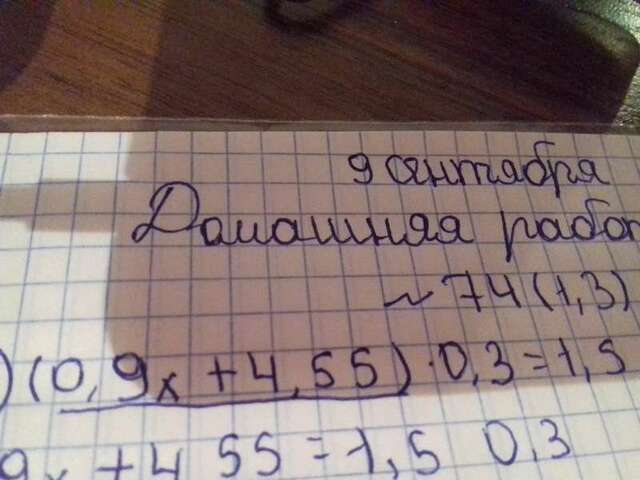 9 сентября
Домашняя работ
~ 74 (1,3)
) (0,9x + 4,55) · 0,3 = 1,5
9x + 4 55 = 1,5 0,3